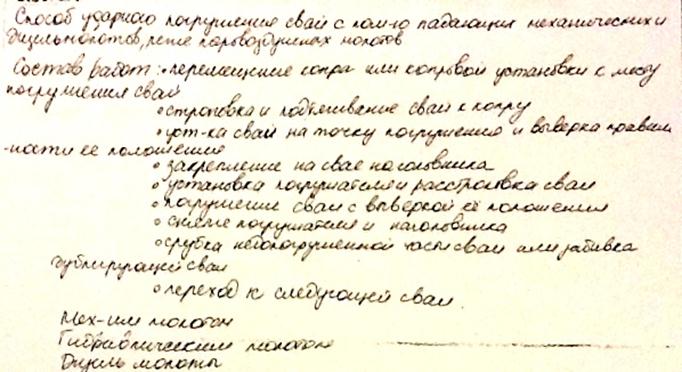 Способ ударного погружения свай с пом-ю падающих механических и
дизельмолотов, реже паровоздушных молотов
Состав работ: • перемещение копра или копровой установки к месту
погружения свай
• строповка и подтягивание сваи к копру
• уст-ка свай на точку погружения и выверка правиль
-ности её положения
• закрепление на свае наголовника
• установка погружателя и расстроповка сваи
• погружение сваи с выверкой её положения
• снятие погружателя и наголовника
• срубка недопогруженной части сваи или забивка
дублирующей сваи
• переход к следующей свае
Мех-им молотом
Гидравлическим молотом
Дизель молоты